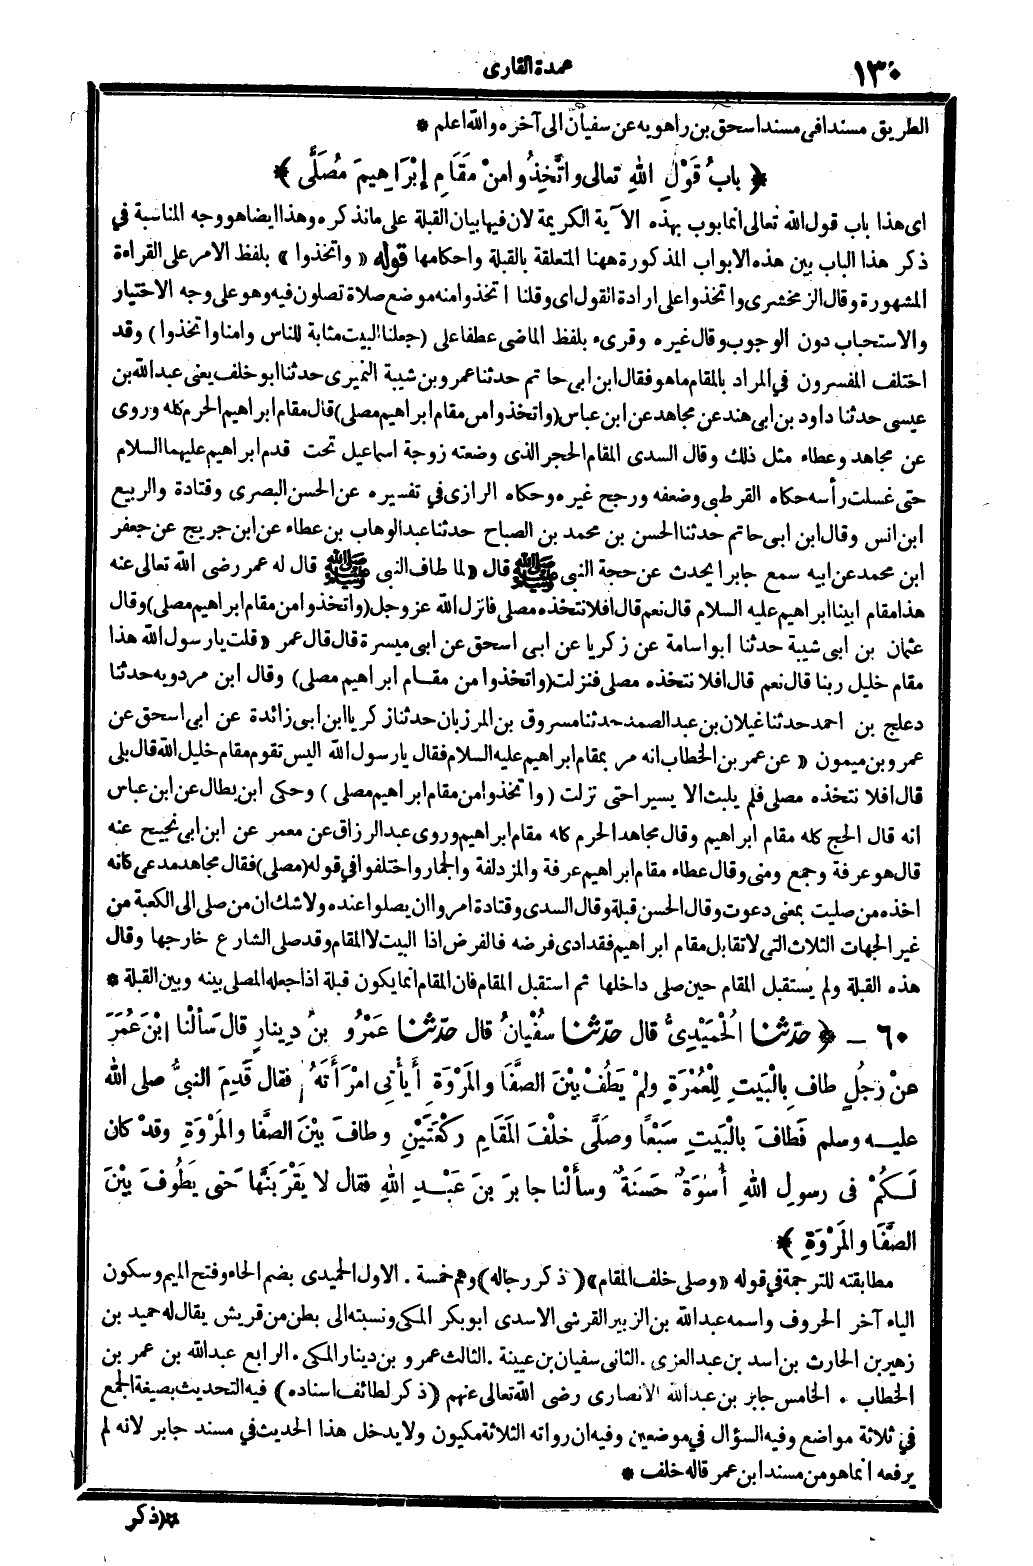 ١٣٠
عمدة القارى
الطريق مسندا فى مسند اسحق بن راهويه عن سفيان الى آخره والله اعلم *
﴿ بابُ قَوْلِ اللهِ تعالى واتَّخِذُوا مِنْ مَقَامِ إِبْرَاهِيمَ مُصَلَّى ﴾
اى هذا باب قول الله تعالى انما بوب بهذه الآية الكريمة لان فيها بيان القبلة على ما نذكره وهذا ايضا هو وجه المناسبة في
ذكر هذا الباب بين هذه الابواب المذكورة ههنا المتعلقة بالقبلة واحكامها قوله « واتخذوا » بلفظ الامر على القراءة
المشهورة وقال الزمخشرى واتخذوا على ارادة القول اى وقلنا اتخذوا منه موضع صلاة تصلون فيه وهو على وجه الاختيار
والاستحباب دون الوجوب وقال غيره وقرىء بلفظ الماضى عطفا على (جعلنا البيت مثابة للناس وامنا واتخذوا) وقد
اختلف المفسرون في المراد بالمقام ما هو فقال ابن ابى حاتم حدثنا عمرو بن شيبة النميرى حدثنا ابو خلف يعنى عبد الله بن
عيسى حدثنا داود بن ابى هند عن مجاهد عن ابن عباس (واتخذوا من مقام ابراهيم مصلى) قال مقام ابراهيم الحرم كله وروى
عن مجاهد وعطاء مثل ذلك وقال السدى المقام الحجر الذى وضعته زوجة اسماعيل تحت قدم ابراهيم عليهما السلام
حتى غسلت رأسه حكاه القرطبى وضعفه ورجح غيره وحكاه الرازى في تفسيره عن الحسن البصرى وقتادة والربيع
ابن انس وقال ابن ابى حاتم حدثنا الحسن بن محمد بن الصباح حدثنا عبد الوهاب بن عطاء عن ابن جريج عن جعفر
ابن محمد عن ابيه سمع جابرا يحدث عن حجة النبى ﷺ قال « لما طاف النبى ﷺ قال له عمر رضى الله تعالى عنه
هذا مقام ابينا ابراهيم عليه السلام قال نعم قال افلا نتخذه مصلى فانزل الله عز وجل (واتخذوا من مقام ابراهيم مصلى) وقال
عثمان بن ابى شيبة حدثنا ابو اسامة عن زكريا عن ابى اسحق عن ابى ميسرة قال قال عمر « قلت يا رسول الله هذا
مقام خليل ربنا قال نعم قال افلا نتخذه مصلى فنزلت (واتخذوا من مقام ابراهيم مصلى) وقال ابن مردويه حدثنا
دعلج بن احمد حدثنا غيلان بن عبد الصمد حدثنا مسروق بن المرزبان حدثنا زكريا ابن ابى زائدة عن ابى اسحق عن
عمرو بن ميمون « عن عمر بن الخطاب انه مر بمقام ابراهيم عليه السلام فقال يا رسول الله اليس تقوم مقام خليل الله قال بلى
قال افلا نتخذه مصلى فلم يلبث الا يسيرا حتى نزلت (واتخذوا من مقام ابراهيم مصلى) وحكى ابن بطال عن ابن عباس
انه قال الحج كله مقام ابراهيم وقال مجاهد الحرم كله مقام ابراهيم وروى عبد الرزاق عن معمر عن ابن ابى نجيح عنه
قال هو عرفة وجمع ومنى وقال عطاء مقام ابراهيم عرفة والمزدلفة والجمار واختلفوا في قوله (مصلى) فقال مجاهد مدعى كانه
اخذه من صليت بمعنى دعوت وقال الحسن قبلة وقال السدى وقتادة امروا ان يصلوا عنده ولا شك ان من صلى الى الكعبة من
غير الجهات الثلاث التى لا تقابل مقام ابراهيم فقد ادى فرضه فالفرض اذا البيت لا المقام وقد صلى الشارع خارجها وقال
هذه القبلة ولم يستقبل المقام حين صلى داخلها ثم استقبل المقام فان المقام انما يكون قبلة اذا جعله المصلى بينه وبين القبلة *
٦٠ – ﴿ حدّثنا الْحُمَيْدِىُّ قال حدّثنا سُفْيانُ قال حدّثنا عَمْرُو بنُ دِينارٍ قال سَألْنا ابْنَ عُمَرَ
عنْ رَجُلٍ طافَ بِالْبَيْتِ لِلْعُمْرَةِ ولمْ يَطُفْ بَيْنَ الصَّفَا والمَرْوَةِ أيَأْتِى امْرَأتَهُ فقال قَدِمَ النبىُّ صلى الله
عليه وسلم فَطافَ بالْبَيْتِ سَبْعًا وصَلَّى خَلْفَ المَقَامِ رَكْعَتَيْنِ وطافَ بَيْنَ الصَّفَا والمَرْوَةِ وقدْ كان
لَكُمْ فى رسولِ اللهِ أُسْوَةٌ حَسَنَةٌ وسألْنا جابرَ بنَ عَبْدِ اللهِ فقال لا يَقْرَبَنَّها حَتى يَطُوفَ بَيْنَ
الصَّفَا والمَرْوَةِ ﴾ *
مطابقته للترجمة في قوله «وصلى خلف المقام» (ذكر رجاله) وهم خمسة . الاول الحميدى بضم الحاء وفتح الميم وسكون
الياء آخر الحروف واسمه عبد الله بن الزبير القرشى الاسدى ابو بكر المكى ونسبته الى بطن من قريش يقال له حميد بن
زهير بن الحارث بن اسد بن عبد العزى . الثانى سفيان بن عيينة . الثالث عمرو بن دينار المكى . الرابع عبد الله بن عمر بن
الخطاب . الخامس جابر بن عبد الله الانصارى رضى الله تعالى عنهم (ذكر لطائف اسناده) فيه التحديث بصيغة الجمع
في ثلاثة مواضع وفيه السؤال في موضعين وفيه ان رواته الثلاثة مكيون ولا يدخل هذا الحديث في مسند جابر لانه لم
يرفعه انما هو من مسند ابن عمر قاله خلف *
*(ذكر